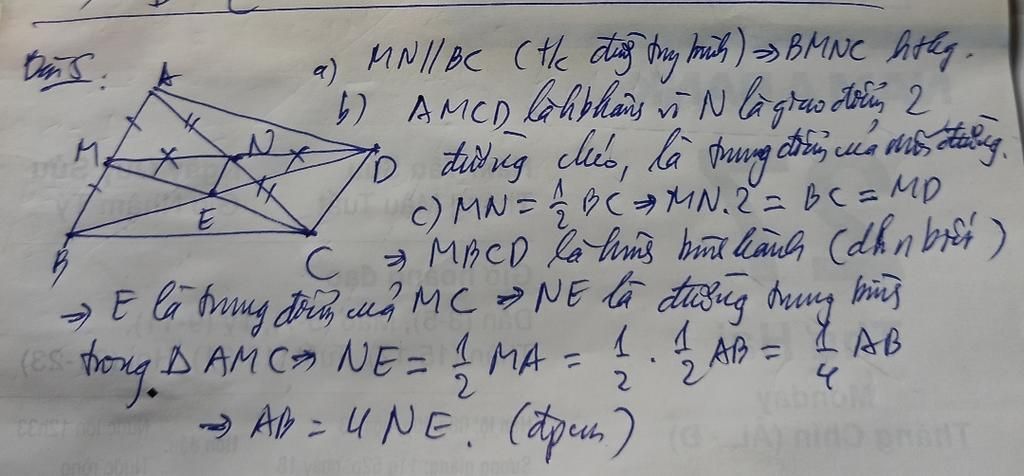 Bài 5:
a) MN//BC (t/c đường trung bình) ⇒ BMNC hthg.
b) AMCD là hbhành vì N là giao điểm 2
đường chéo, là trung điểm của mỗi đường.
c) MN = 1/2 BC ⇒ MN.2 = BC = MD
⇒ MBCD là hình bình hành (dh n biết)
⇒ E là trung điểm của MC ⇒ NE là đường trung bình
trong Δ AMC ⇒ NE = 1/2 MA = 1/2 . 1/2 AB = 1/4 AB
⇒ AB = 4 NE. (đpcm)
A
M
N
D
E
B
C
Monday